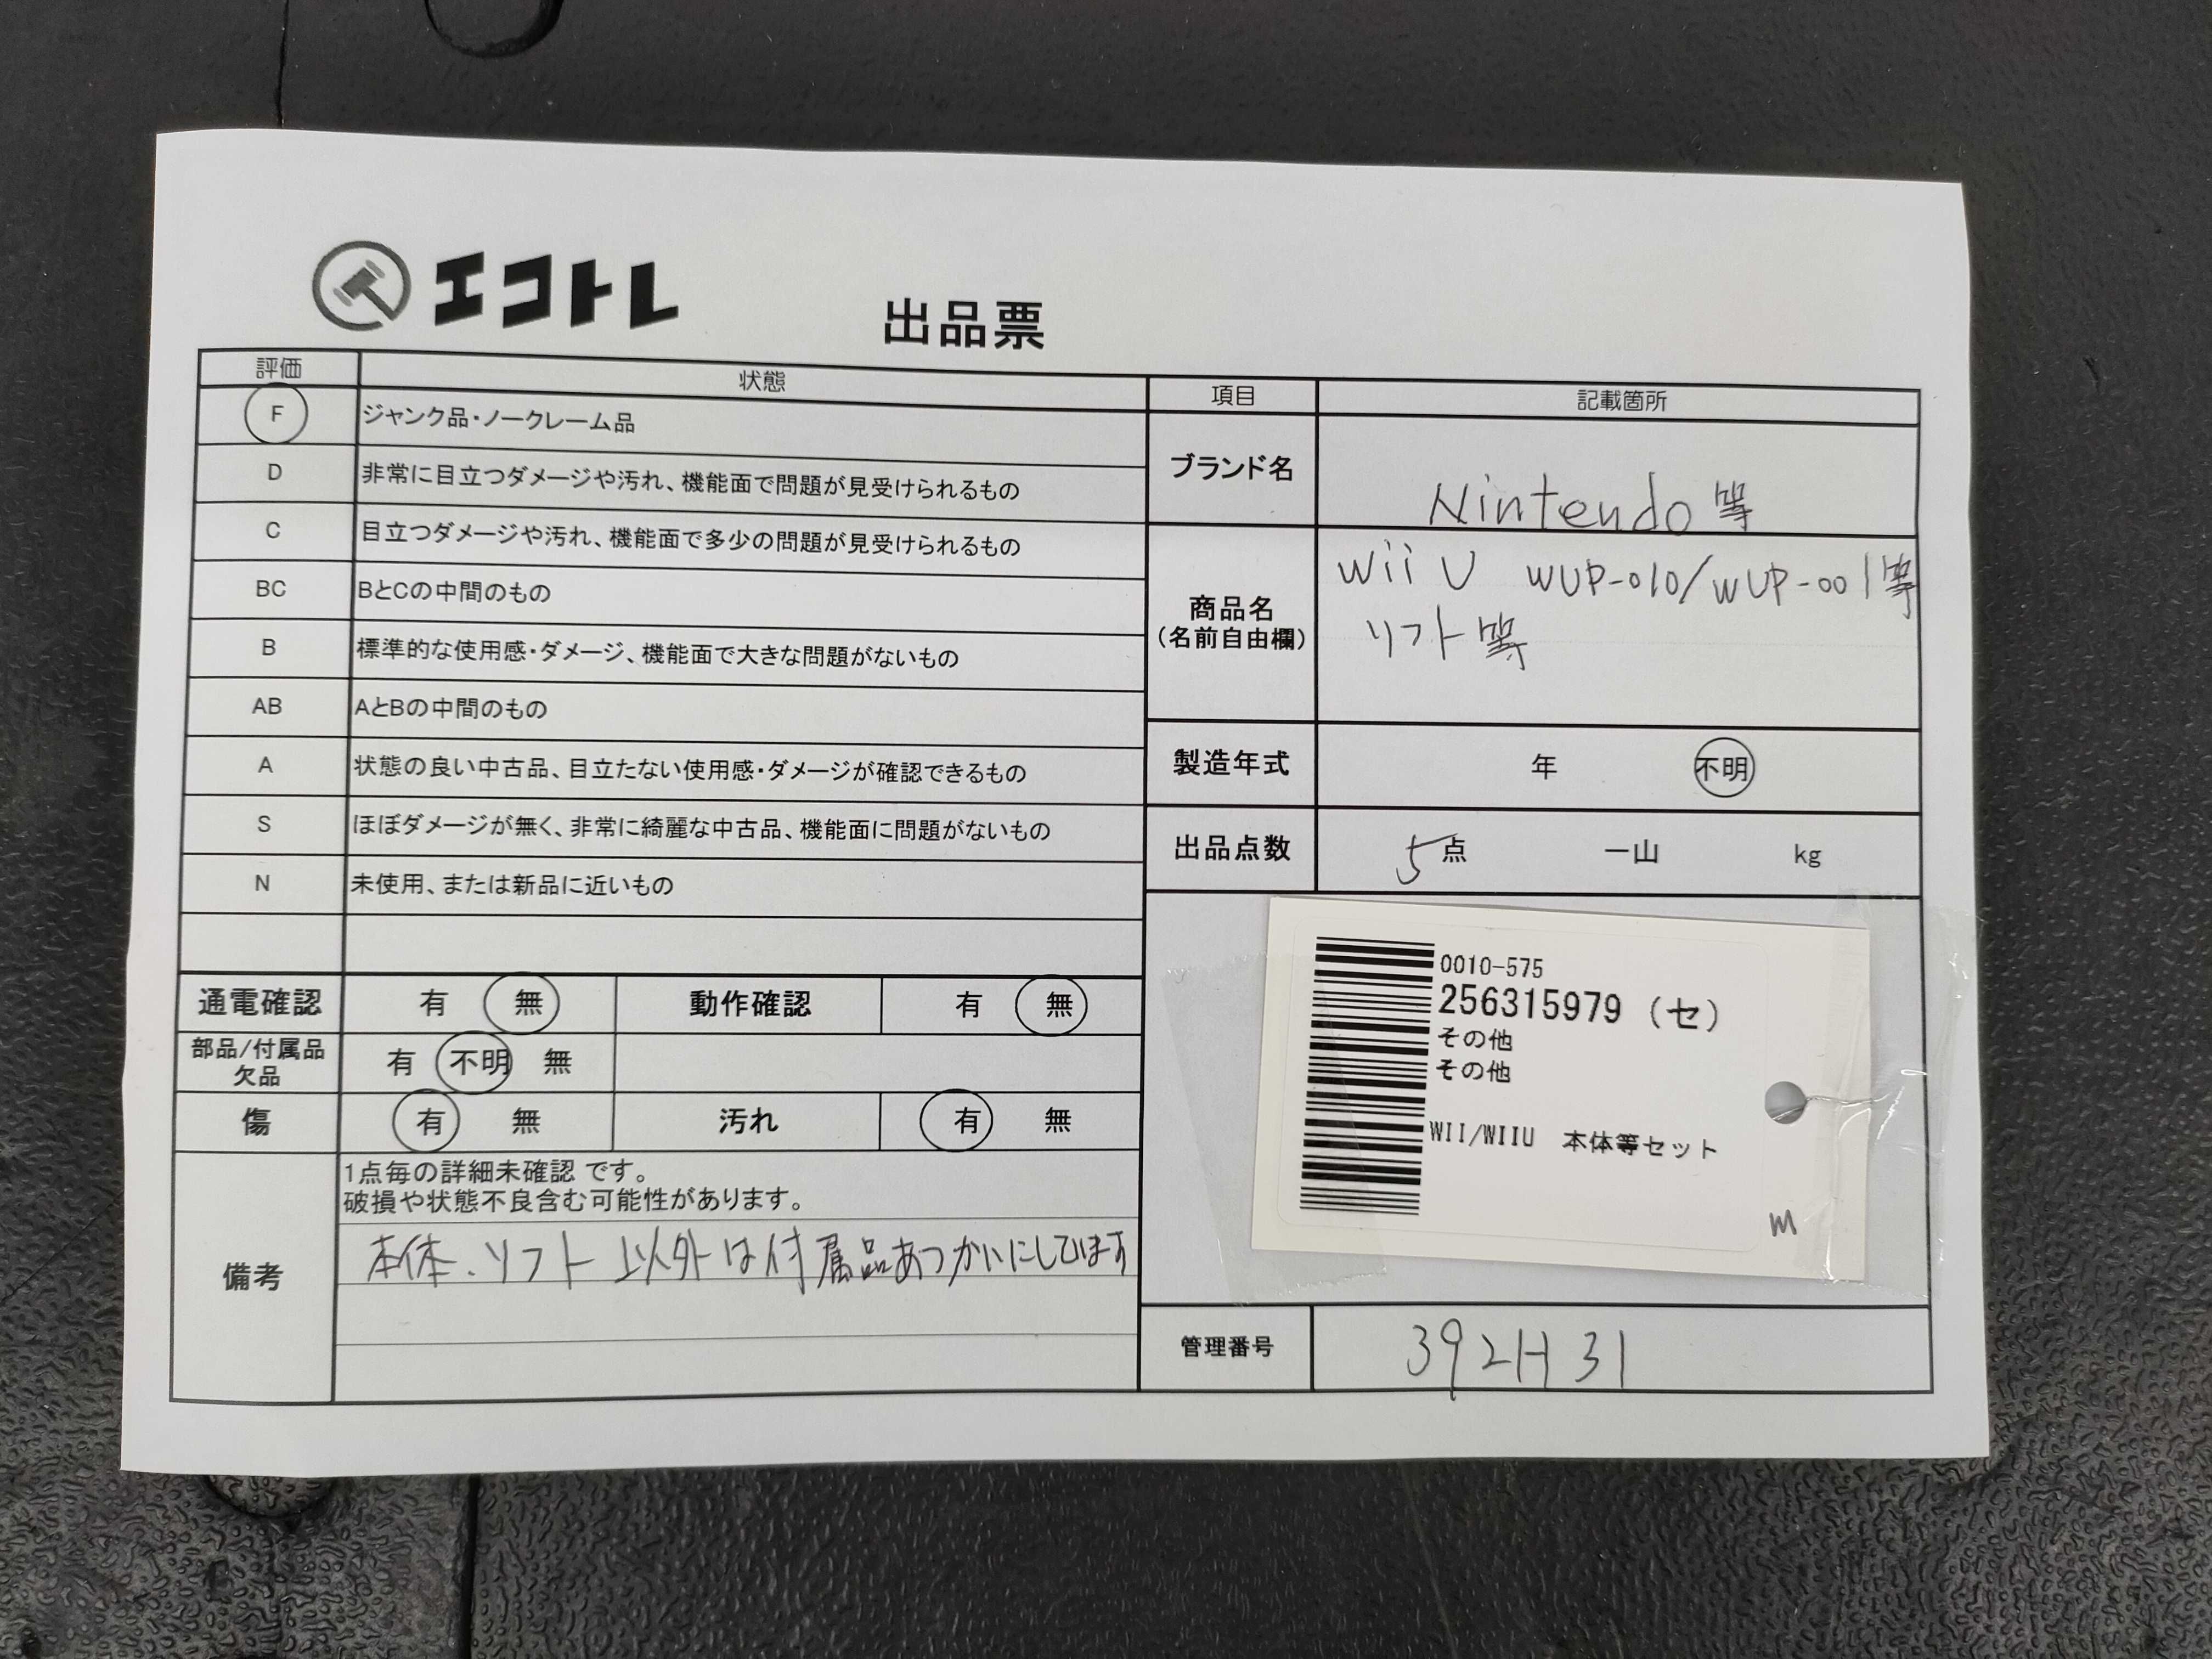 エコトレ
出品票
評価 状態
F ジャンク品・ノークレーム品
D 非常に目立つダメージや汚れ、機能面で問題が見受けられるもの
C 目立つダメージや汚れ、機能面で多少の問題が見受けられるもの
BC BとCの中間のもの
B 標準的な使用感・ダメージ、機能面で大きな問題がないもの
AB AとBの中間のもの
A 状態の良い中古品、目立たない使用感・ダメージが確認できるもの
S ほぼダメージが無く、非常に綺麗な中古品、機能面に問題がないもの
N 未使用、または新品に近いもの
通電確認 有 無 動作確認 有 無
部品/付属品
欠品 有 不明 無
傷 有 無 汚れ 有 無
備考
1点毎の詳細未確認 です。
破損や状態不良含む可能性があります。
本体、ソフト 以外は付属品あつかいにしています
項目 記載箇所
ブランド名 Nintendo 等
商品名
(名前自由欄)
Wii U WUP-010/WUP-001等
ソフト等
製造年式 年 不明
出品点数 5点 一山 kg
0010-575
256315979 (セ)
その他
その他
WII/WIIU 本体等セット
M
管理番号 392H31